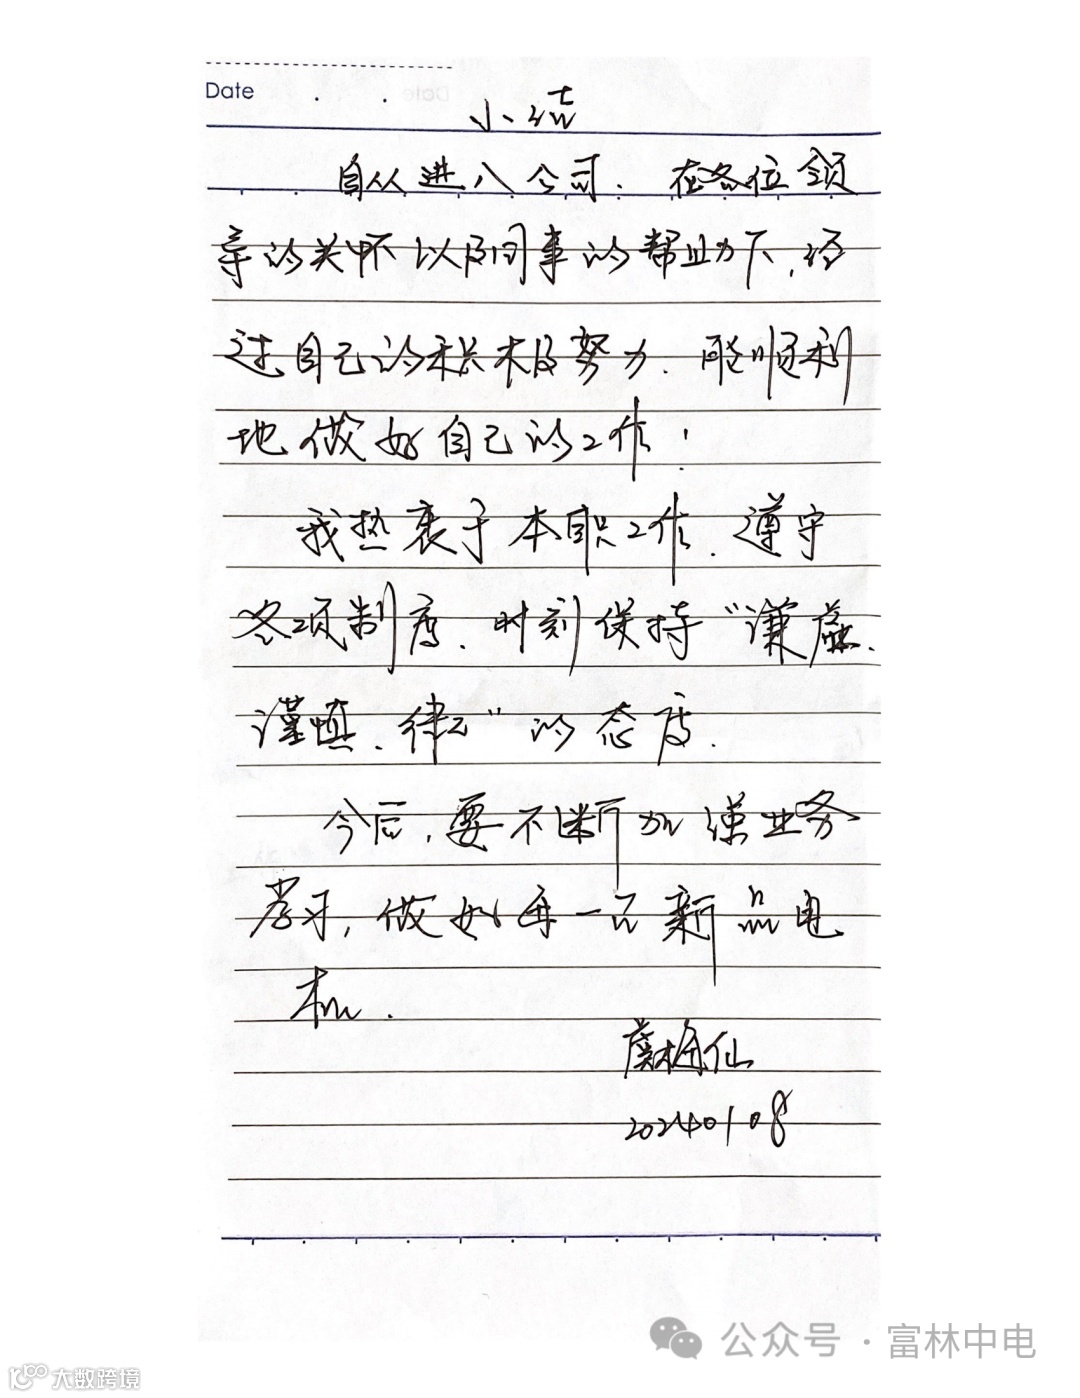 Date
小结
自从进入公司．在各位领
导的关怀以及同事的帮助下，经
过自己的积极努力．能顺利
地做好自己的工作！
我热衷于本职工作．遵守
各项制度．时刻保持“谦虚、
谨慎、律己”的态度．
今后，要不断加强业务
学习，做好每一台新品电
机．
虞梅仙
20240108
公众号·富林中电
大数跨境